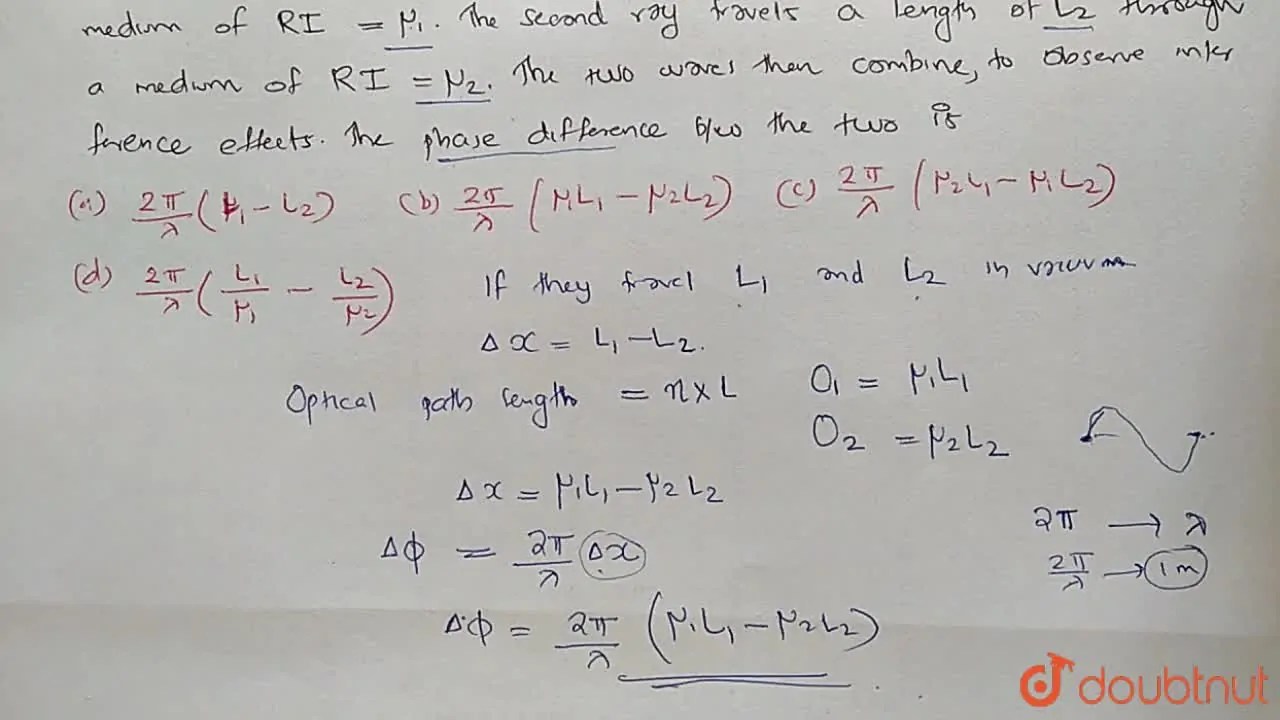 medium of RI = μ1. The second ray travels a length of L2 through
a medium of RI = μ2. The two waves then combine, to observe inter
ference effects. The phase difference b/w the two is
(a) 2π/λ (L1 - L2) (b) 2π/λ (μ1L1 - μ2L2) (c) 2π/λ (μ2L1 - μ1L2)
(d) 2π/λ (L1/μ1 - L2/μ2) If they travel L1 and L2 in vacuum
Δx = L1 - L2.
Optical path length = n x L O1 = μ1L1
O2 = μ2L2
Δx = μ1L1 - μ2L2
2π → λ
Δφ = 2π/λ Δx
2π/λ → 1m
Δφ = 2π/λ (μ1L1 - μ2L2)
doubtnut